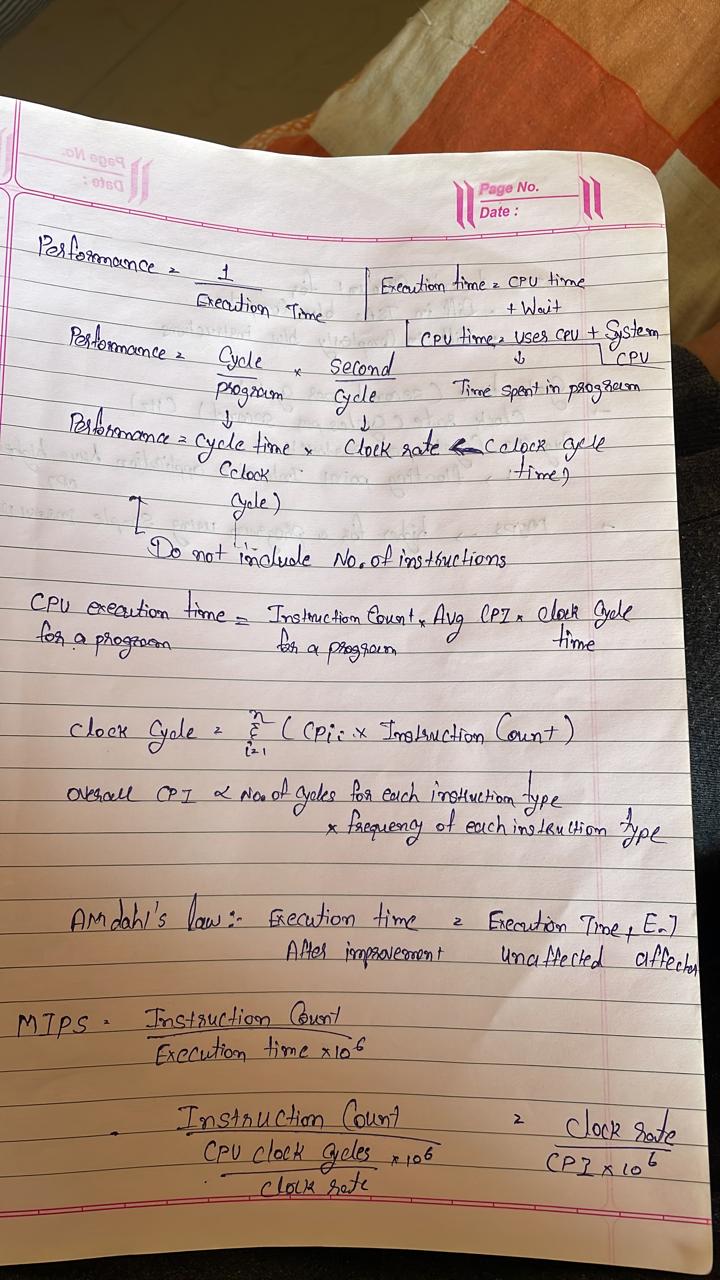 Page No.
Date :
Performance = 1 / Execution Time
Execution time = CPU time
+ Wait
CPU time = user CPU + System
CPU
Time spent in program
Performance = Cycle / program × Second / Cycle
Performance = Cycle time × Clock rate ← (Calock cycle
time)
(clock
Cycle)
Do not include No. of instructions
CPU execution time = Instruction Count × Avg CPI × Clock Cycle
for a program for a program time
Clock Cycle = n Σ i=1 ( CPIi × Instruction Count )
Overall CPI ∝ No. of cycles for each instruction type
× frequency of each instruction type
Amdahl's law :- Execution time = Execution Time + E.T
After improvement Unaffected affected
MIPS = Instruction Count
Execution time × 10⁶
Instruction Count = Clock rate
CPU clock cycles × 10⁶ CPI × 10⁶
Clock rate